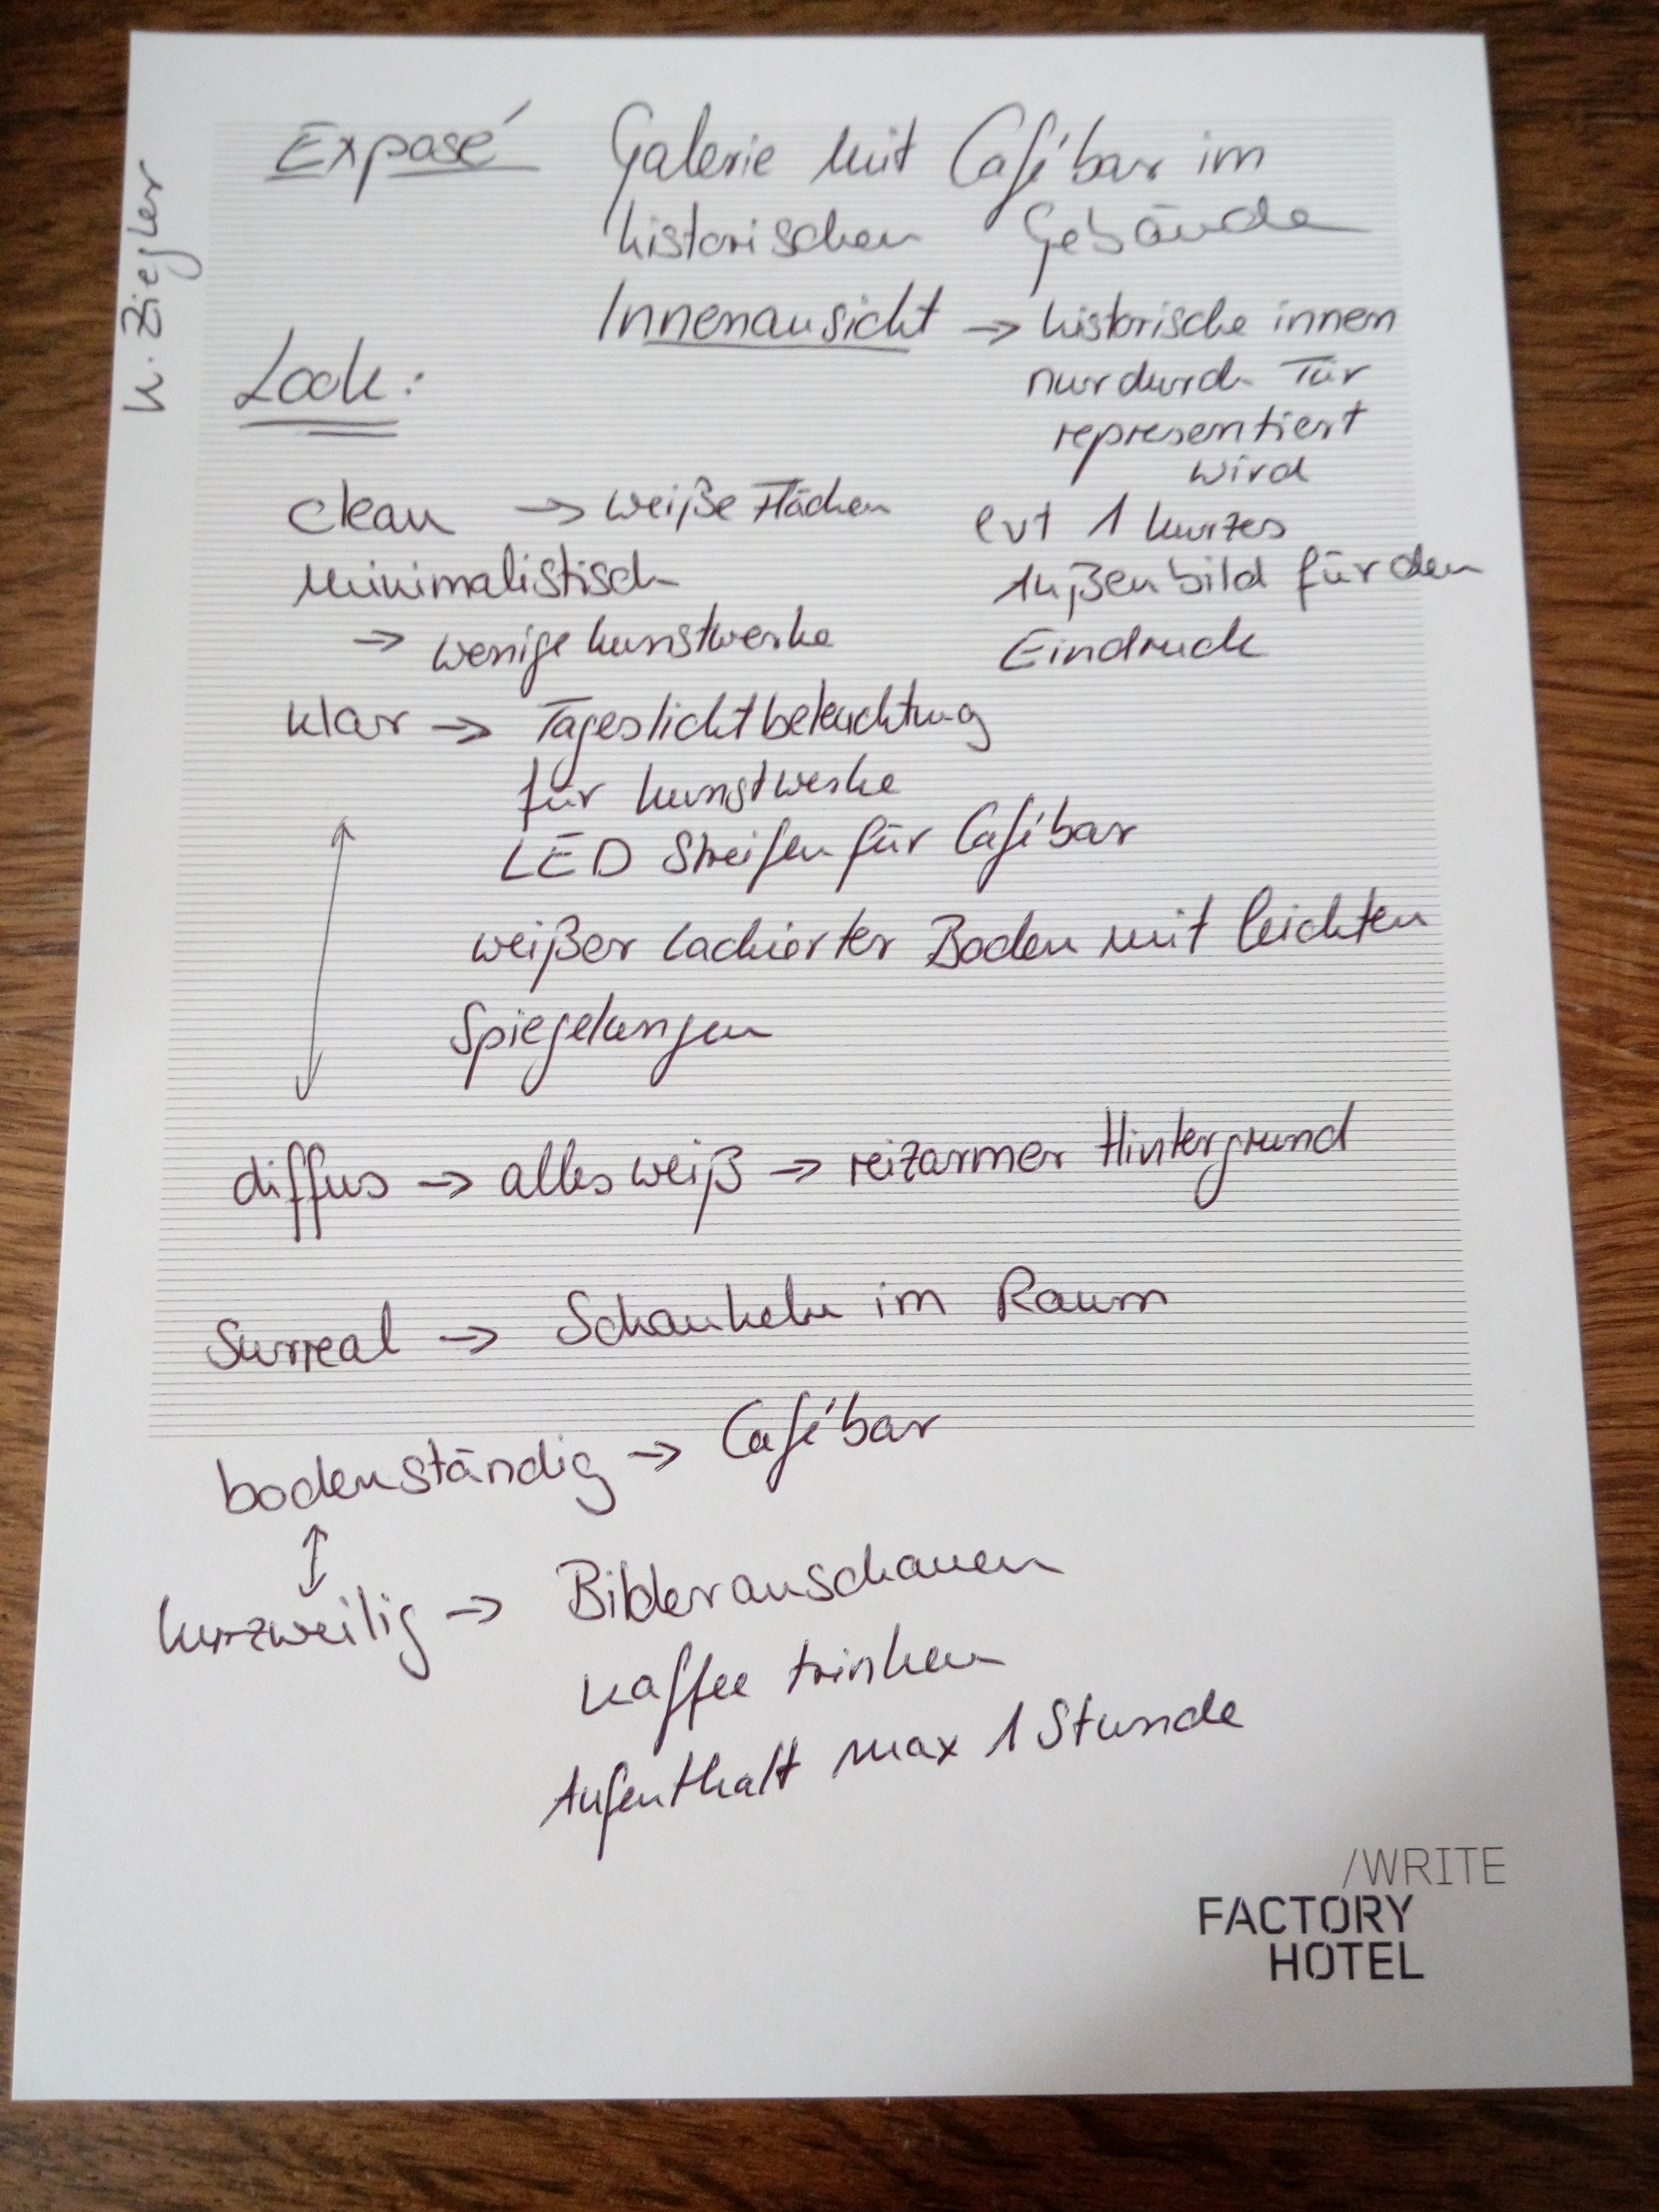 K. Ziegler
Exposé Galerie mit Cafébar im
historischen Gebäude
Innenansicht → historische innen
nur durch Tür
representiert
wird
evt 1 kurzes
Außenbild für den
Eindruck
Look:
clean → weiße Flächen
minimalistisch
→ wenige Kunstwerke
klar → Tageslichtbeleuchtung
für Kunstwerke
LED Streifen für Cafébar
weißer lackierter Boden mit leichten
Spiegelungen
diffus → alles weiß → reizarmer Hintergrund
Surreal → Schaukeln im Raum
bodenständig → Cafébar
↕
kurzweilig → Bilder anschauen
Kaffee trinken
Aufenthalt max 1 Stunde
/WRITE
FACTORY
HOTEL